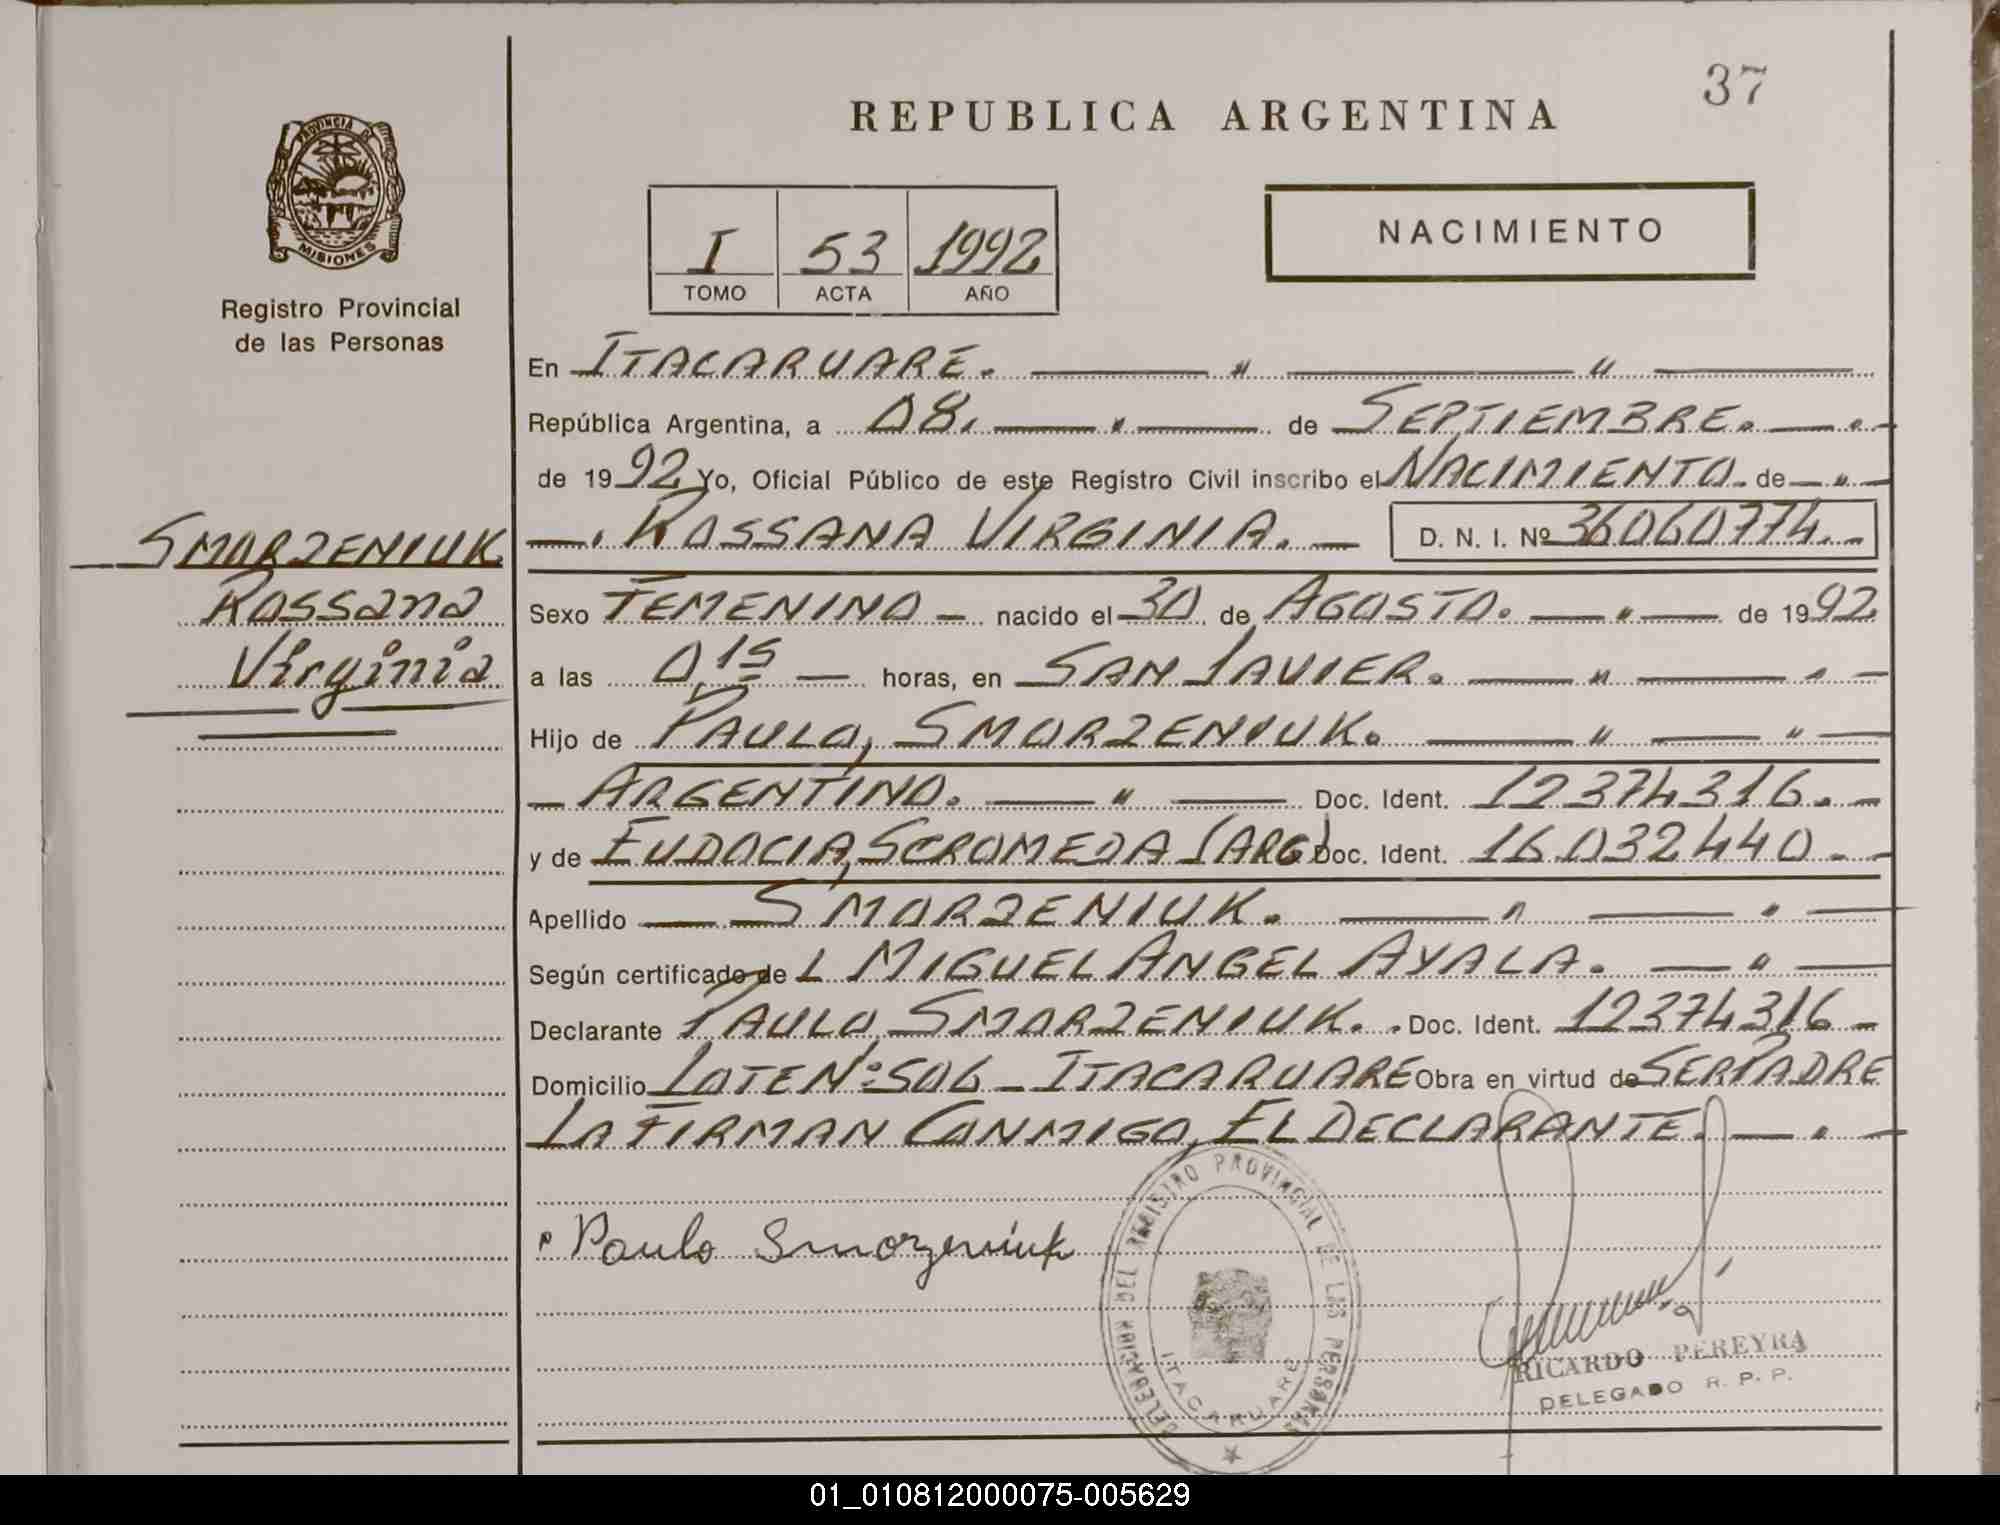 37
REPUBLICA ARGENTINA
PROVINCIA DE
MISIONES
Registro Provincial
de las Personas
I 53 1992
TOMO ACTA AÑO
NACIMIENTO
En ITACARUARE. — " — " —
República Argentina, a 08. — " — de SEPTIEMBRE. — .
de 1992 Yo, Oficial Público de este Registro Civil inscribo el NACIMIENTO. de — " —
SMORZENIUK
Rossana
Virginia
— . ROSSANA VIRGINIA. — D. N. I. Nº 36060774. —
Sexo FEMENINO — nacido el 30 de AGOSTO. — " — de 1992.
a las 0,15 — horas, en SAN JAVIER. — " — " —
Hijo de PAULO, SMORZENIUK. — " — " —
— ARGENTINO. — " — Doc. Ident. 12374316. —
y de EUDOCIA, SCROMEDA (ARG) Doc. Ident. 16032440. —
Apellido — SMORZENIUK. — " — " —
Según certificado de L MIGUEL ANGEL AYALA. — " —
Declarante PAULO, SMORZENIUK. . Doc. Ident. 12374316 —
Domicilio LOTE Nº: 506 — ITACARUARE Obra en virtud de SER PADRE
LA FIRMAN CONMIGO, EL DECLARANTE. — " —
Paulo Smorzeniuk
DELEGACION DEL REGISTRO PROVINCIAL DE LAS PERSONAS
ITACARUARE
RICARDO PEREYRA
DELEGADO R. P. P.
01_010812000075-005629